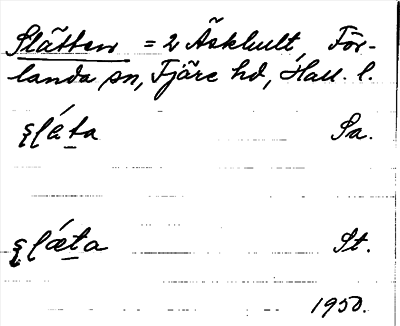 Slätten = 2 Äskhult, För-
landa sn, Fjäre hd, Hall. l.
ʂḷáta Sa.
ʂḷǽta St.
1950.